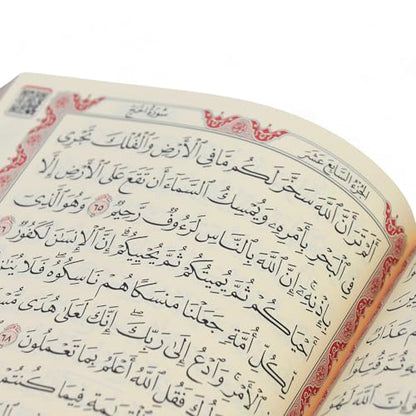 سورة الحج
الجزء السابع عشر
أَلَمْ تَرَ أَنَّ ٱللَّهَ سَخَّرَ لَكُم مَّا فِى ٱلْأَرْضِ وَٱلْفُلْكَ تَجْرِى
فِى ٱلْبَحْرِ بِأَمْرِهِۦ وَيُمْسِكُ ٱلسَّمَآءَ أَن تَقَعَ عَلَى ٱلْأَرْضِ إِلَّا
بِإِذْنِهِۦٓ إِنَّ ٱللَّهَ بِٱلنَّاسِ لَرَءُوفٌ رَّحِيمٌ ٦٥ وَهُوَ ٱلَّذِىٓ
أَحْيَاكُمْ ثُمَّ يُمِيتُكُمْ ثُمَّ يُحْيِيكُمْ إِنَّ ٱلْإِنسَٰنَ لَكَفُورٌ ٦٦
لِّكُلِّ أُمَّةٍ جَعَلْنَا مَنسَكًا هُمْ نَاسِكُوهُ فَلَا
ٱلْأَمْرِ وَٱدْعُ إِلَىٰ رَبِّكَ إِنَّكَ لَعَلَىٰ هُدًى
فَقُلِ ٱللَّهُ أَعْلَمُ بِمَا تَعْمَلُونَ ٦٨
فِيمَا كُنتُمْ
عَذَابٌ